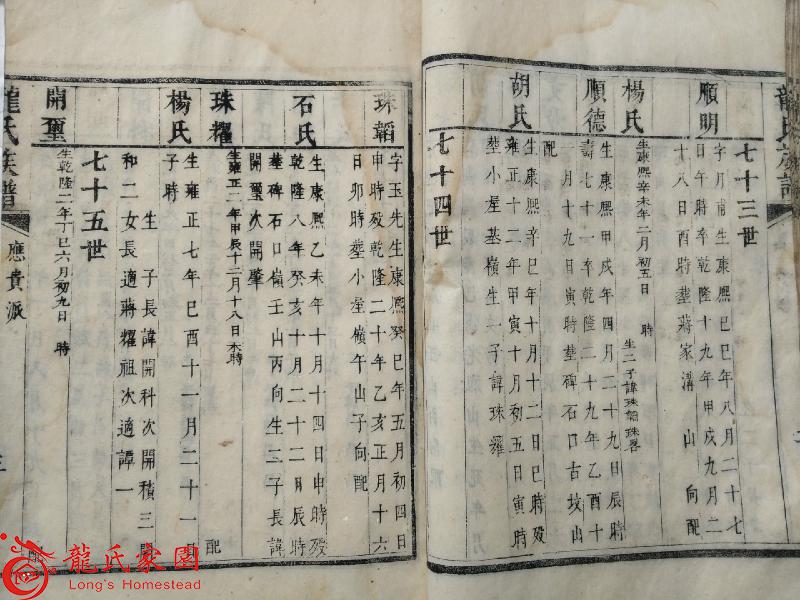 龍氏族譜
七十三世
順明
字月甫生康熙巳巳年八月二十七
日午時卒乾隆十九年甲戌九月二
十八日酉時塟蔣家溝 山 向配
楊氏
生康熙辛未年二月初五日 時
生二子諱珠韜珠畧
順德
生康熙甲戌年四月二十九日辰時
壽七十一卒乾隆二十九年乙酉十
一月十九日寅時塟碑石口古坟山
配
胡氏
生康熙辛巳年十月十二日巳時殁
雍正十二年甲寅十月初五日寅時
塟小屋基嶺生一子諱珠耀
七十四世
珠韜
字玉先生康熙癸巳年五月初四日
申時殁乾隆二十年乙亥正月十六
日卯時塟小屋嶺午山子向配
石氏
生康熙乙未年十月十四日申時殁
乾隆八年癸亥十月二十二日辰時
塟碑石口嶺壬山丙向生二子長諱
開璽次開肇
珠耀
生雍正二年甲辰十二月十八日未時
配
楊氏
生雍正七年巳酉十一月二十一日
子時
生 子長諱開科次開積三開
和二女長適蔣耀祖次適譚一
七十五世
開璽
生乾隆二年丁巳六月初九日 時
配
龍氏族譜
應貴派
三
龍氏家園
Long's Homestead